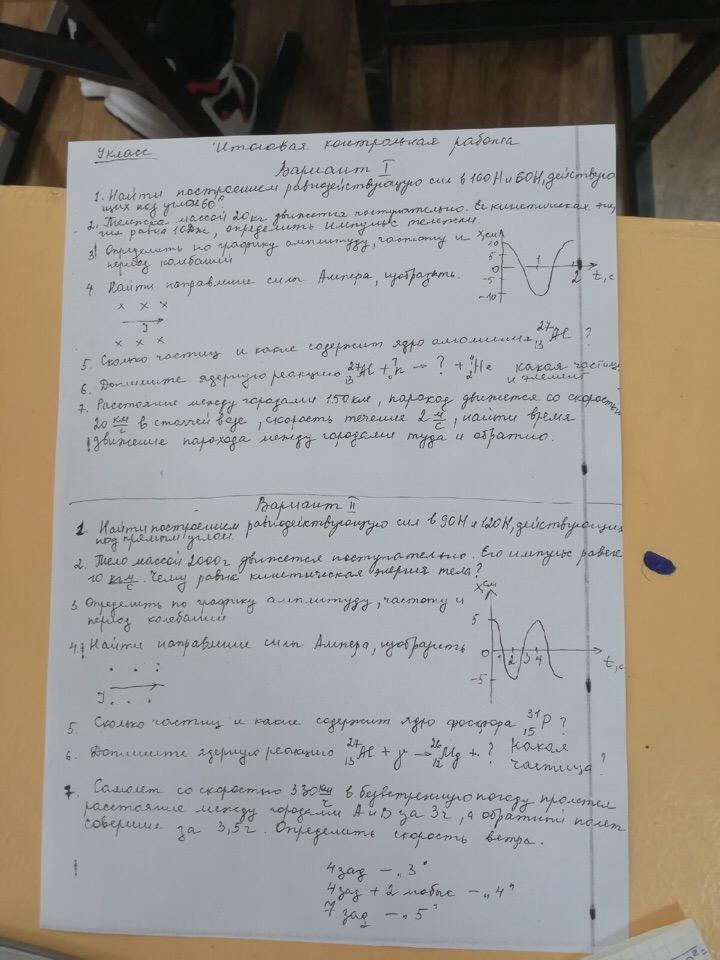 9 класс Итоговая контрольная работа
Вариант I
1. Найти построением равнодействующую сил в 100 Н и 60Н, действую
щих под углом 60°
2. Тележка массой 20 кг движется поступательно. Её кинетическая энер
гия равна 10 Дж, определить импульс тележки.
3. Определить по графику амплитуду, частоту и
период колебаний
x, см
10
5
0
-5
-10
1
2
t, c
4. Найти направление силы Ампера, изобразить.
x x x
I
x x x
5. Сколько частиц и какие содержит ядро алюминия ²⁷₁₃Al ?
6. Допишите ядерную реакцию ²⁷₁₃Al + ¹₀n → ? + ⁴₂He какая частица
и элемент
7. Расстояние между городами 150 км, пароход движется со скоростью
20 км/с в стоячей воде, скорость течения 2 м/с, найти время
движение парохода между городами туда и обратно.
Вариант II
1. Найти построением равнодействующую сил в 90Н и 120Н, действующих
под прямым углом.
2. Тело массой 2000г движется поступательно. Его импульс равен
10 кг·м/с. Чему равна кинетическая энергия тела?
3. Определить по графику амплитуду, частоту и
период колебаний
x см
5
0
-5
1 2 3 4
t, c
4. Найти направление силы Ампера, изобразить
. . .
I
. . .
5. Сколько частиц и какие содержит ядро фосфора ³¹₁₅P ?
6. Допишите ядерную реакцию ²⁷₁₃Al + γ → ²⁶₁₂Mg + ? Какая
частица?
7. Самолет со скоростью 330 км/ч в безветренную погоду пролетел
расстояние между городами А и В за 3 ч, а обратный полет
совершил за 3,5 ч. Определить скорость ветра.
4 зад – „3"
4 зад + 2 любые – „4"
7 зад – „5"